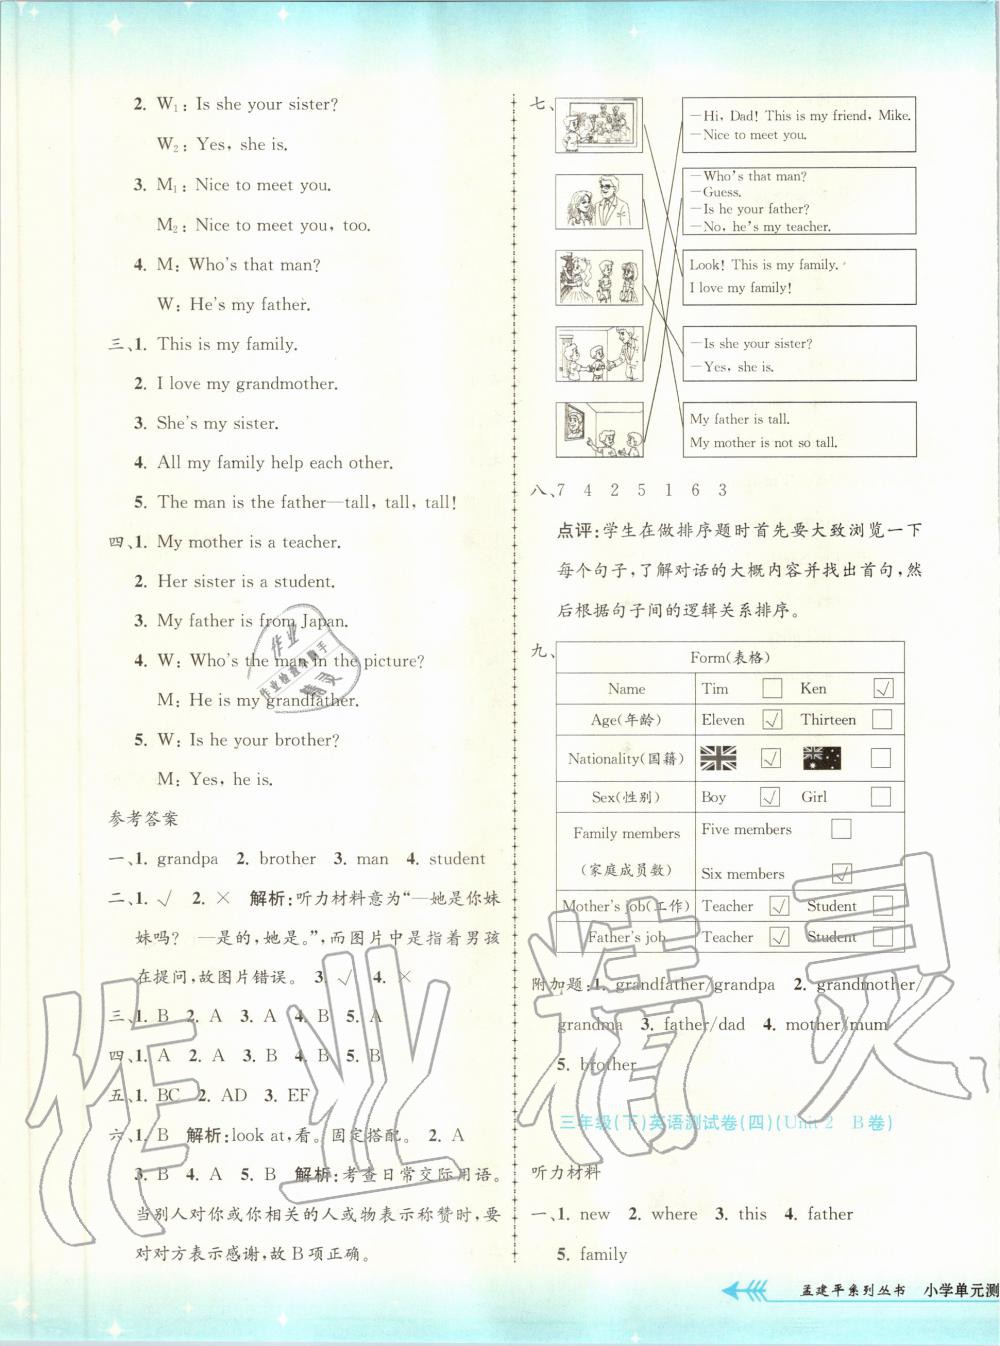 2. W₁: Is she your sister?
W₂: Yes, she is.
3. M₁: Nice to meet you.
M₂: Nice to meet you, too.
4. M: Who's that man?
W: He's my father.
三、1. This is my family.
2. I love my grandmother.
3. She's my sister.
4. All my family help each other.
5. The man is the father—tall, tall, tall!
四、1. My mother is a teacher.
2. Her sister is a student.
3. My father is from Japan.
4. W: Who's the man in the picture?
M: He is my grandfather.
5. W: Is he your brother?
M: Yes, he is.
参考答案
一、1. grandpa 2. brother 3. man 4. student
二、1. √ 2. × 解析:听力材料意为“—她是你妹
妹吗? —是的,她是。”,而图片中是指着男孩
在提问,故图片错误。 3. √ 4. ×
三、1. B 2. A 3. A 4. B 5. A
四、1. A 2. A 3. B 4. B 5. B
五、1. BC 2. AD 3. EF
六、1. B 解析:look at,看。固定搭配。 2. A
3. B 4. A 5. B 解析:考查日常交际用语。
当别人对你或你相关的人或物表示称赞时,要
对对方表示感谢,故B项正确。
七、
—Hi, Dad! This is my friend, Mike.
—Nice to meet you.
—Who's that man?
—Guess.
—Is he your father?
—No, he's my teacher.
Look! This is my family.
I love my family!
—Is she your sister?
—Yes, she is.
My father is tall.
My mother is not so tall.
八、7 4 2 5 1 6 3
点评:学生在做排序题时首先要大致浏览一下
每个句子,了解对话的大概内容并找出首句,然
后根据句子间的逻辑关系排序。
九、
Form(表格)
Name Tim □ Ken ☑
Age(年龄) Eleven ☑ Thirteen □
Nationality(国籍) ☑ □
Sex(性别) Boy ☑ Girl □
Family members
(家庭成员数)
Five members □
Six members ☑
Mother's job(工作) Teacher ☑ Student □
Father's job Teacher ☑ Student □
附加题:1. grandfather/grandpa 2. grandmother/
grandma 3. father/dad 4. mother/mum
5. brother
三年级(下)英语测试卷(四)(Unit 2 B卷)
听力材料
一、1. new 2. where 3. this 4. father
5. family
孟建平系列丛书 小学单元测
作业精灵
作业
作业检查小助手
精灵